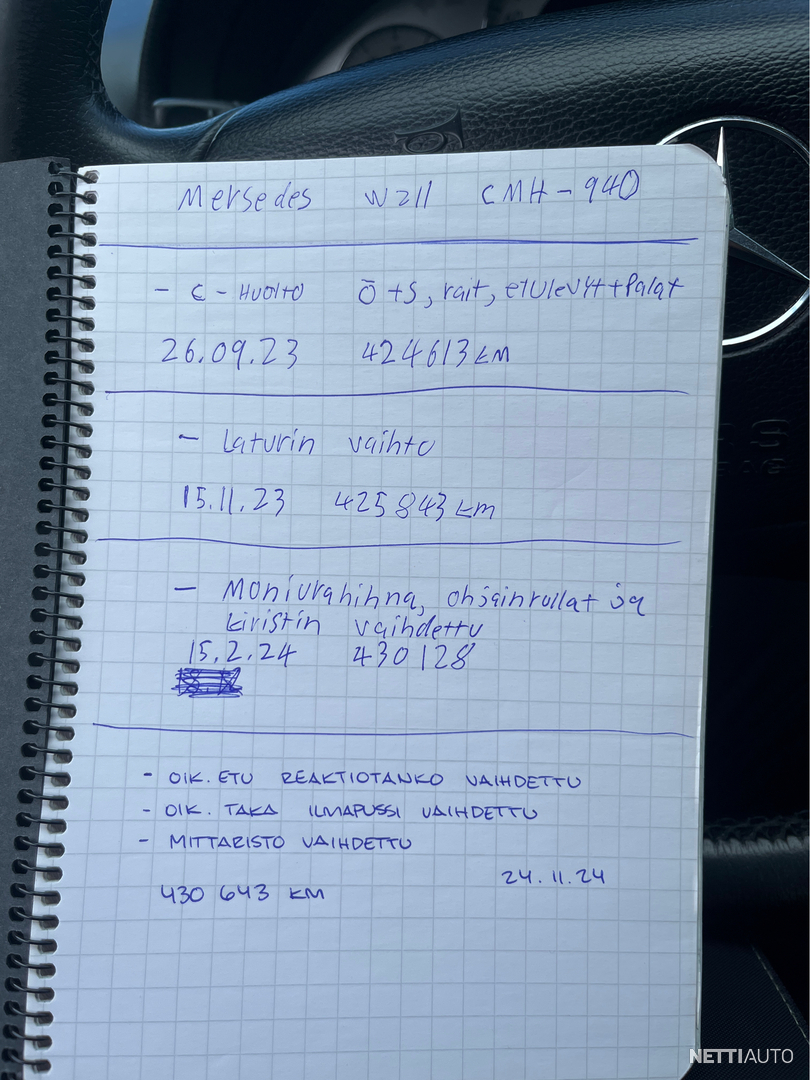 Mersedes W211 CMH-940
- C-Huolto Ö+S, rait, etulevyt+Palat
26.09.23 424613 KM
- Laturin vaihto
15.11.23 425843 km
- Moniurahihna, ohjainrullat ja
kiristin vaihdettu
15.2.24 430128
- OIK. ETU REAKTIOTANKO VAIHDETTU
- OIK. TAKA ILMAPUSSI VAIHDETTU
- MITTARISTO VAIHDETTU
24.11.24
430 643 KM
NETTIAUTO